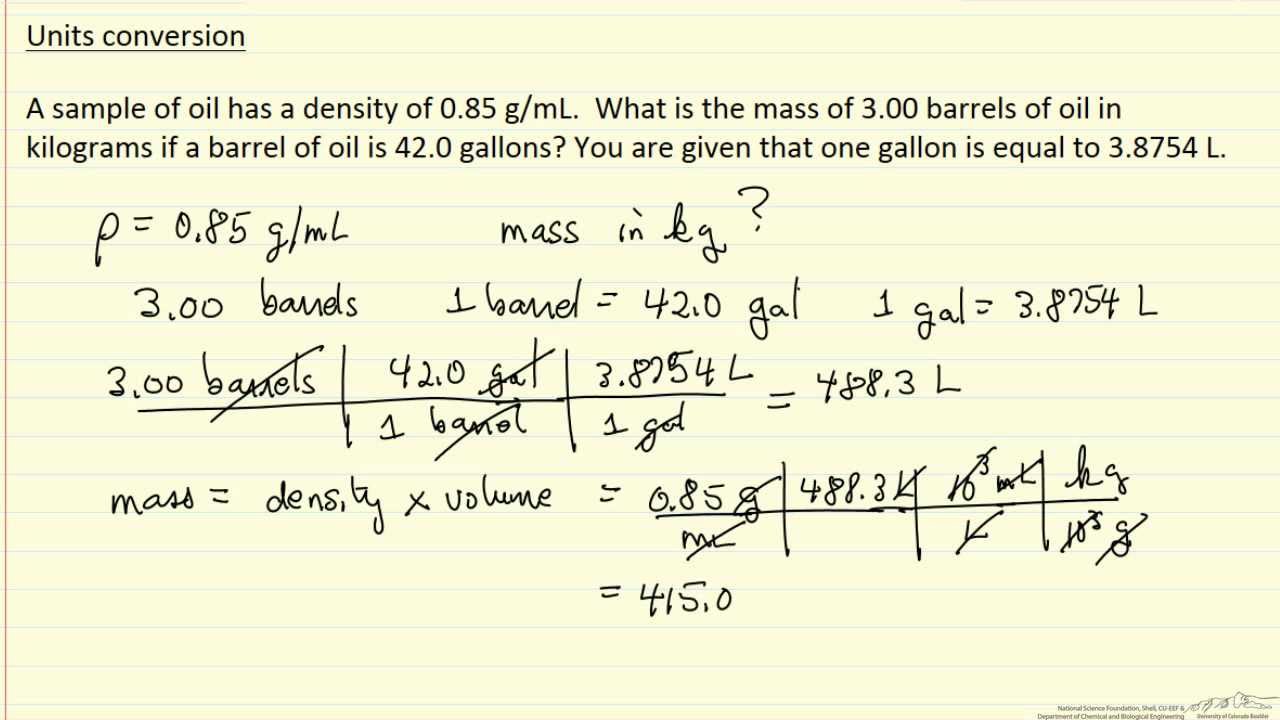 Units conversion
A sample of oil has a density of 0.85 g/mL. What is the mass of 3.00 barrels of oil in
kilograms if a barrel of oil is 42.0 gallons? You are given that one gallon is equal to 3.8754 L.
ρ = 0.85 g/mL mass in kg ?
3.00 barrels 1 barrel = 42.0 gal 1 gal = 3.8754 L
3.00 barrels | 42.0 gal | 3.8754 L = 488.3 L
1 barrel | 1 gal
mass = density x volume = 0.85 g | 488.3 L | 10³ mL | kg
mL | L | 10³ g
= 415.0
National Science Foundation, Shell, CU-EEF &
Department of Chemical and Biological Engineering University of Colorado Boulder